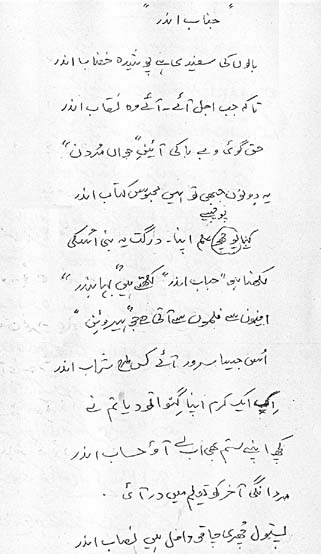 "جناب اندر"
بالوں کی سفیدی ہے پوشیدہ خضاب اندر
تاکہ جب اجل آئے۔ آئے وہ نقاب اندر
حق گوئی و بے باکی آئین "جواں مرداں"
یہ دونوں جبھی تو ہیں محبوس کتاب اندر
پوچھیے
کیا پوچھیے علم اپنا۔ درگت یہ بنی اسکی
لکھنا ہو "جناب اندر" لکھتے ہیں
افیون سے فلموں سے آتی ہے جو "ہیروئین"
اس جیسا سرور آئے کس طرح شراب اندر
اک ایک کرم اپنا گنوا تو دیا تم نے
کچھ اپنے ستم بھی اب لے آؤ حساب اندر
مردانگی آخر کو تعلیم میں در آئی۔
پستول چھری چاقو داخل ہیں نصاب اندر